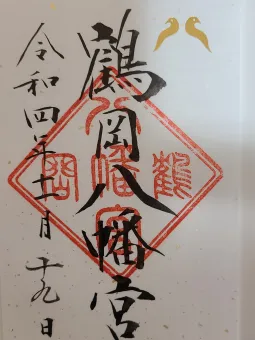 鶴岡八幡宮
令和四年十一月十九日
鶴
八幡宮
岡